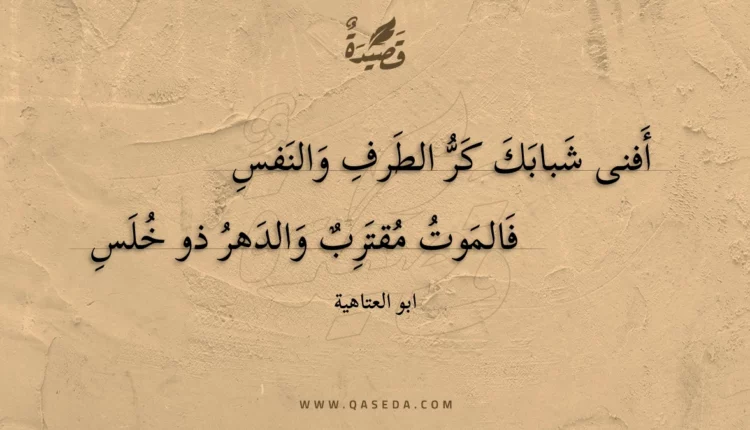 قَصِيدَةٌ
أَفنى شَبابَكَ كَرُّ الطَرفِ وَالنَفسِ
فَالمَوتُ مُقتَرِبٌ وَالدَهرُ ذو خُلَسِ
ابو العتاهية
WWW.QASEDA.COM